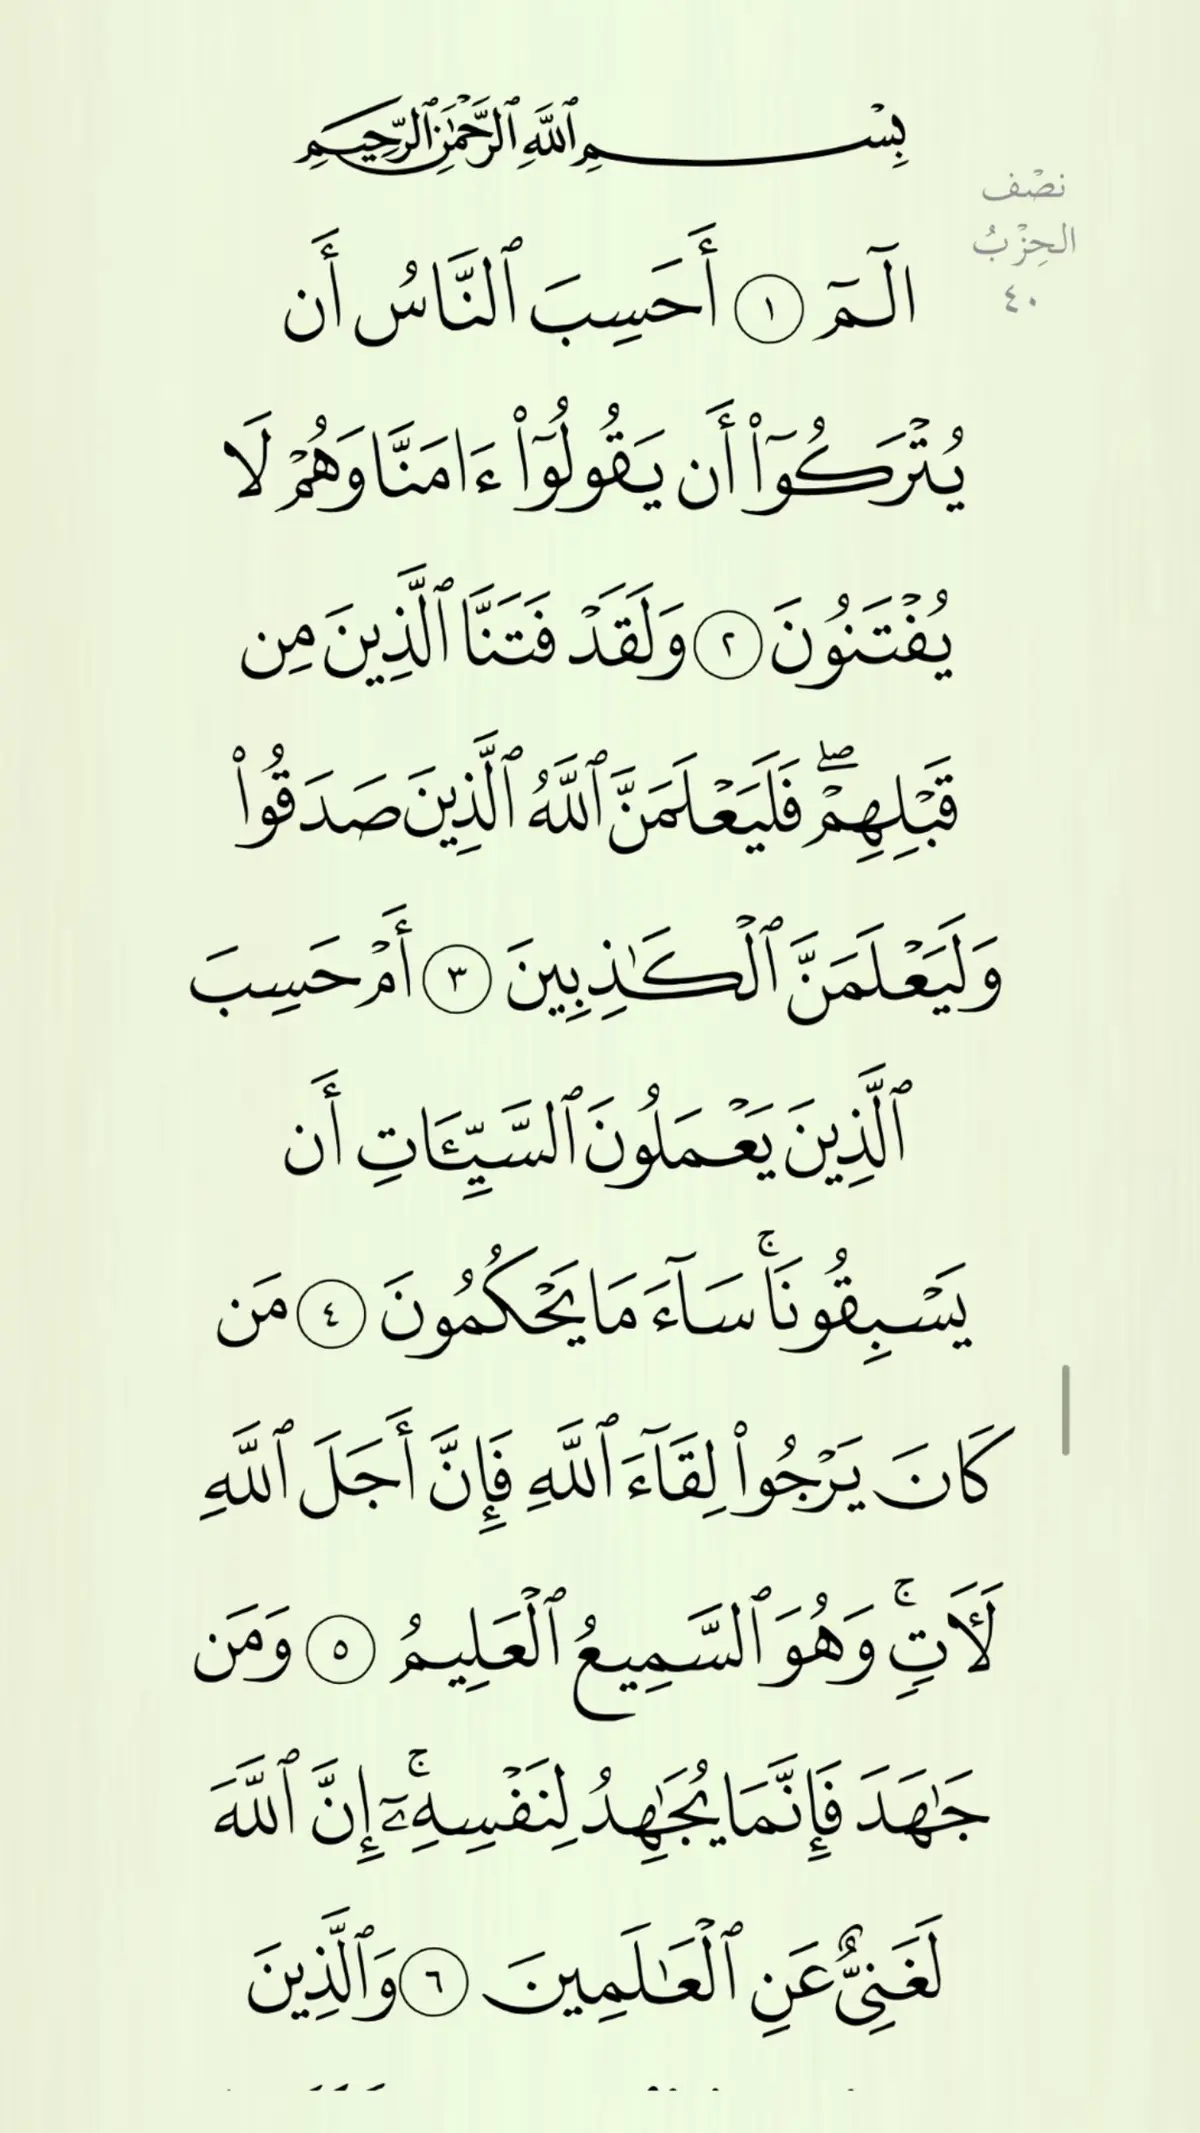 بِسْمِ ٱللَّهِ ٱلرَّحْمَٰنِ ٱلرَّحِيمِ
نصْف
الحِزْبُ
٤٠
الٓمٓ ١ أَحَسِبَ ٱلنَّاسُ أَن
يُتْرَكُوٓا۟ أَن يَقُولُوٓا۟ ءَامَنَّا وَهُمْ لَا
يُفْتَنُونَ ٢ وَلَقَدْ فَتَنَّا ٱلَّذِينَ مِن
قَبْلِهِمْ ۖ فَلَيَعْلَمَنَّ ٱللَّهُ ٱلَّذِينَ صَدَقُوا۟
وَلَيَعْلَمَنَّ ٱلْكَٰذِبِينَ ٣ أَمْ حَسِبَ
ٱلَّذِينَ يَعْمَلُونَ ٱلسَّيِّـَٔاتِ أَن
يَسْبِقُونَا ۚ سَآءَ مَا يَحْكُمُونَ ٤ مَن
كَانَ يَرْجُوا۟ لِقَآءَ ٱللَّهِ فَإِنَّ أَجَلَ ٱللَّهِ
لَـَٔاتٍ ۚ وَهُوَ ٱلسَّمِيعُ ٱلْعَلِيمُ ٥ وَمَن
جَٰهَدَ فَإِنَّمَا يُجَٰهِدُ لِنَفْسِهِۦٓ ۚ إِنَّ ٱللَّهَ
لَغَنِىٌّ عَنِ ٱلْعَٰلَمِينَ ٦ وَٱلَّذِينَ